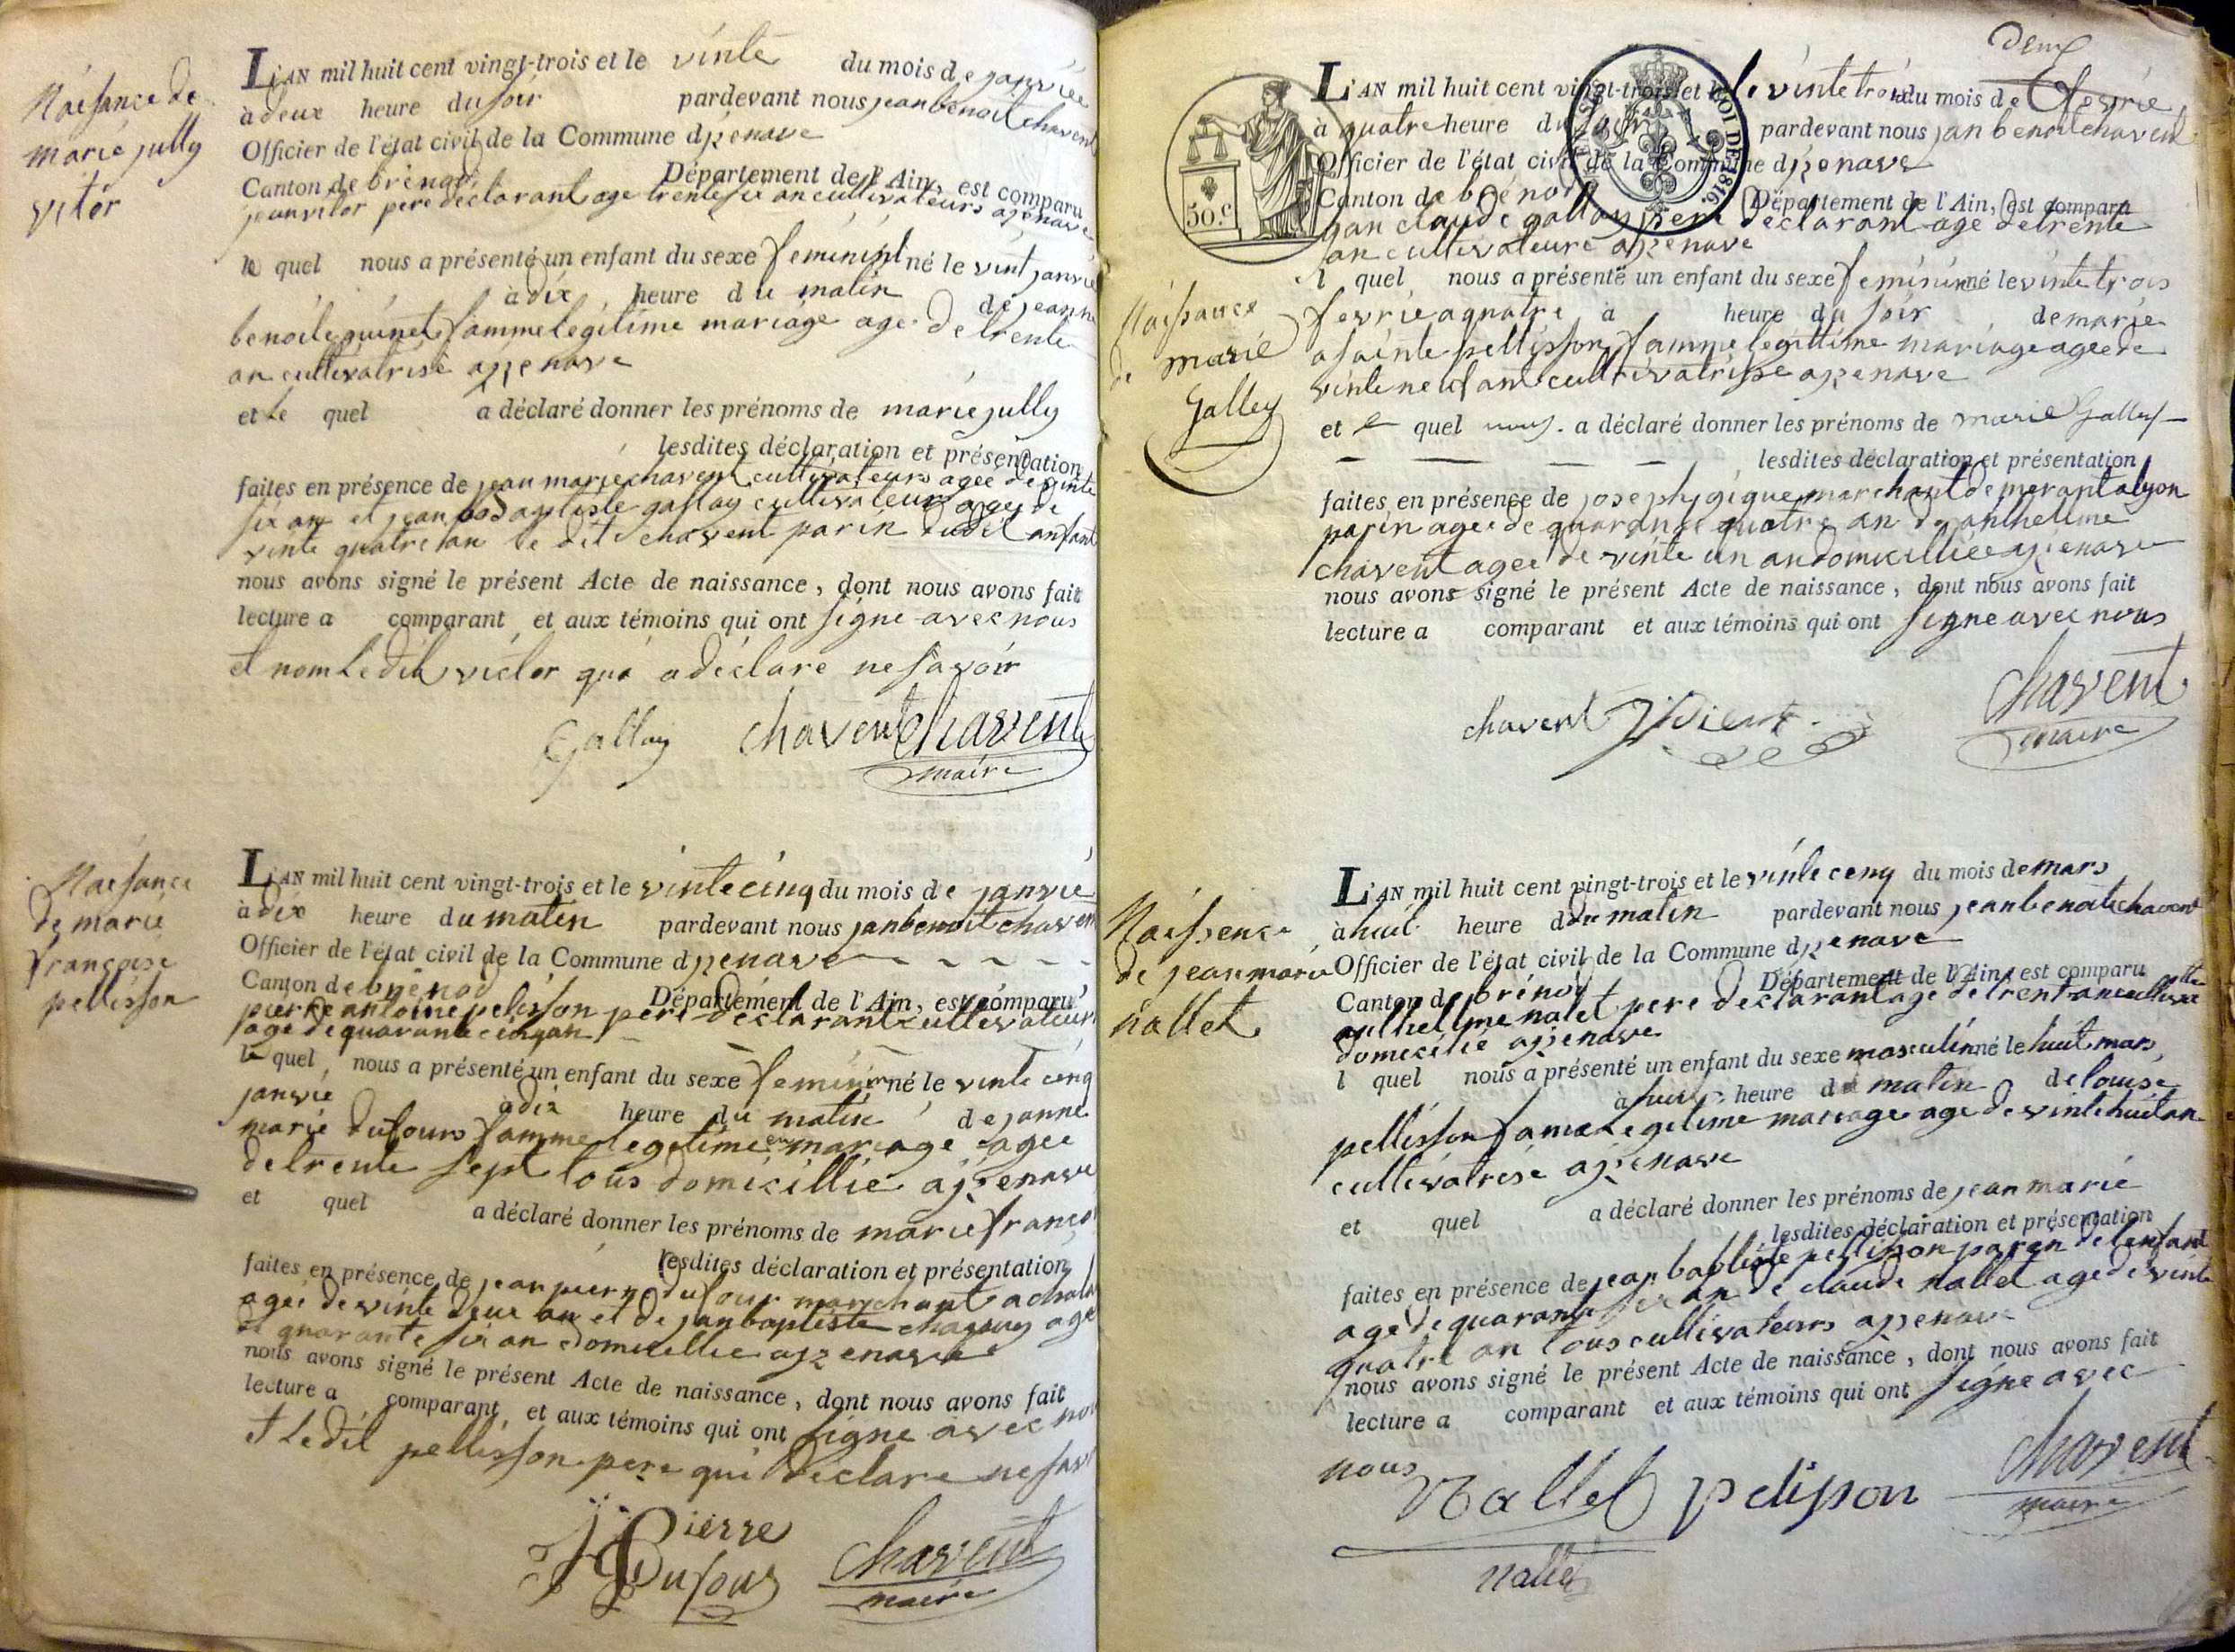 Naissance de
marie jully
vitor
L'AN mil huit cent vingt-trois et le vinte du mois de janviée
à deux heure du soir pardevant nous jean benoit chavent
Officier de l'état civil de la Commune d izenave
Canton de brenod Département de l'Ain, est comparu
jean vitor pere déclarant age trente six an cultivateurs a izenave
le quel nous a présenté un enfant du sexe feminint né le vint janvié
à dix heure du matin de jeanne
benoite guinet famme legitime mariage age de trente
an cultivatrise a izenave
et le quel a déclaré donner les prénoms de marie jully
lesdites déclaration et présentation
faites en présence de jean marie chavent cultivateurs agée de vinte
six an et jean baptiste gallay cultivateurs agée de
vinte quatre an le dit chavent parin dudit anfant
nous avons signé le présent Acte de naissance, dont nous avons fait
lecture a comparant et aux témoins qui ont signe avec nous
et nom le dit victor qui a déclare ne savoir
Gallay chavent Chavent
maire
Naisance
de marie
françoise
pellisson
L'AN mil huit cent vingt-trois et le vinte cinq du mois de janvié
à dix heure du matin pardevant nous jan benoit chavent
Officier de l'état civil de la Commune d izenave
Canton de brénod Département de l'Ain, est comparu
pierre antoine pelisson pere déclarant cultivateur
age de quarante cinq an
le quel nous a présenté un enfant du sexe feminin né le vinte cinq
janvié à dix heure du matin de janne
marie dufours famme legetime en mariage agee
de trente sept tous domicillié a izenave
et quel a déclaré donner les prénoms de marie franço
lesdites déclaration et présentation
faites en présence de jean pierre dufour marchant
agée de vinte deux an et de jan baptiste age
de quarante six an domicillie a izenave
nous avons signé le présent Acte de naissance, dont nous avons fait
lecture a comparant et aux témoins qui ont signe avec nou
et le dit pellisson pere qui déclare ne sav
Pierre
Dufour Chavent
maire
deux
LOI DE 1816.
50.c
Naissance
de marie
Galley
L'AN mil huit cent vingt-trois et le le vinte trois du mois de fevrie
à quatre heure du soir pardevant nous jan benoit chavent
Officier de l'état civil de la Commune d izenave
Canton de brénod Département de l'Ain, est comparu
jan claude gallay pere déclarant age de trente
an cultivateure a izenave
l quel nous a présenté un enfant du sexe feminin né le vinte trois
fevrié a quatre à heure du soir de marie
asainte pellisson famme legitime mariage agée de
vinte neuf ant cultivatrisse a izenave
et le quel nous a déclaré donner les prénoms de marie Galley
lesdites déclaration et présentation
faites en présence de joseph gigue marchant de a lyon
parin agée de quarante quatre an de anthelme
chavent agée de vinte un an domicillée a izenave
nous avons signé le présent Acte de naissance, dont nous avons fait
lecture a comparant et aux témoins qui ont signe avec nous
chavent Chavent
maire
Naissence
de jean marie
nallet
L'AN mil huit cent vingt-trois et le vinte cenq du mois de mars
à huit heure du matin pardevant nous jean benoit chavent
Officier de l'état civil de la Commune d izenave
Canton de brénod Département de l'Ain, est comparu
anthellme nalet pere déclarant age de trent an
domicilié a izenave
l quel nous a présenté un enfant du sexe masculin né le huit mars
à huit heure du matin de louise
pellisson fame legitime mariage age de vinte huit an
cultivatrise a izenave
et quel a déclaré donner les prénoms de jean marie
lesdites déclaration et présentation
faites en présence de jean baptiste pellisson paren de lenfant
age de quarante six an de claude nallet age de vinte
quatre an tous cultivateurs a izenave
nous avons signé le présent Acte de naissance, dont nous avons fait
lecture a comparant et aux témoins qui ont signe avec
nous
Nallet pelisson Chavent
maire
nallet